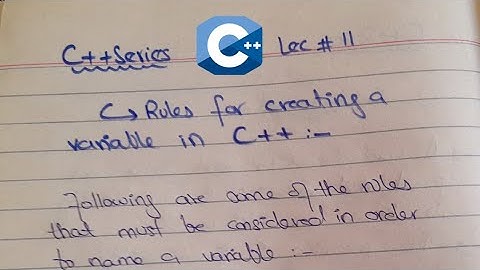 C++ Series C++ Lec # 11
↳ Rules for creating a
variable in C++ :-
Following are some of the rules
that must be considered in order
to name a variable :-